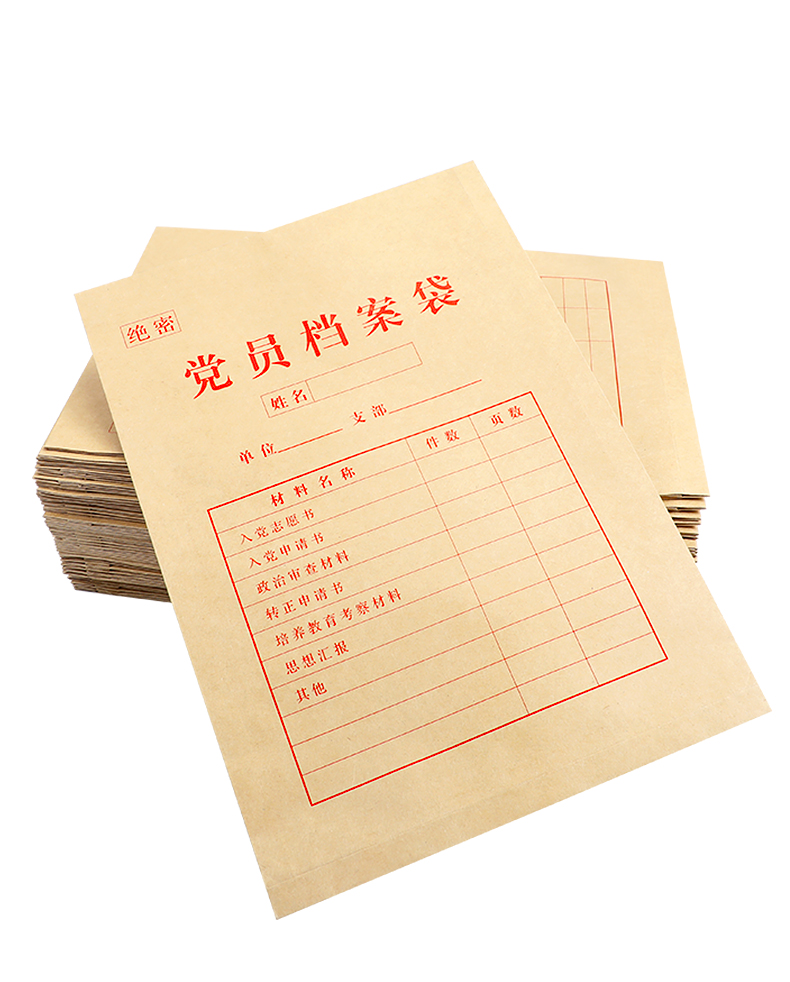 绝密
党员档案袋
姓名
单位 支部
材料名称 件数 页数
入党志愿书
入党申请书
政治审查材料
转正申请书
培养教育考察材料
思想汇报
其他